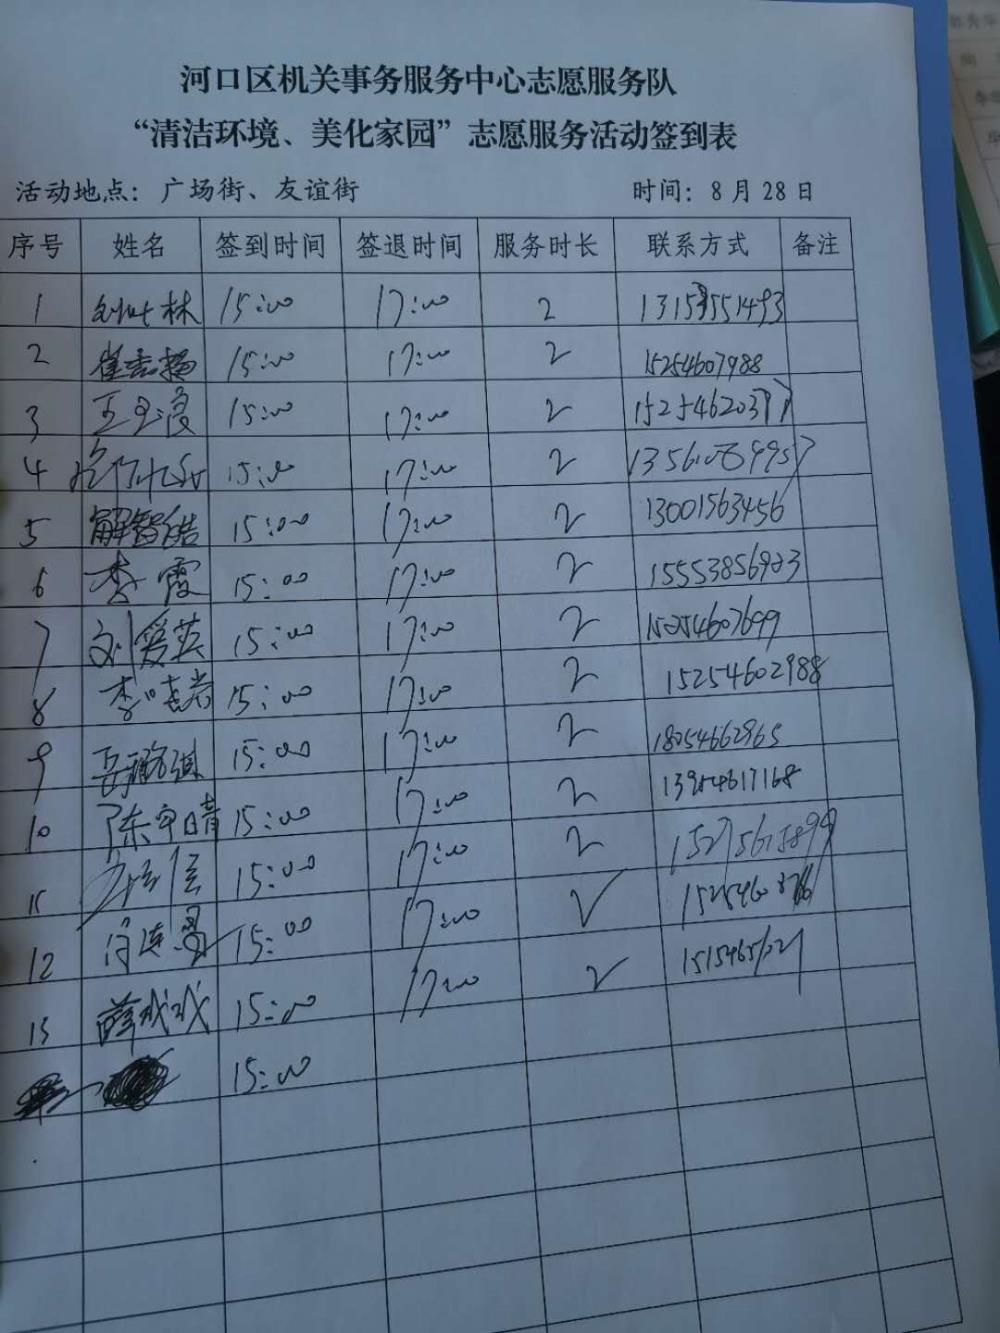 河口区机关事务服务中心志愿服务队
“清洁环境、美化家园”志愿服务活动签到表
活动地点：广场街、友谊街 时间：8月28日
序号 姓名 签到时间 签退时间 服务时长 联系方式 备注
1 林 15:00 17:00 2
2 崔 15:00 17:00 2 15254607988
3 王 15:00 17:00 2
4 15:00 17:00 2
5 解智皓 15:00 17:00 2 13001563456
6 李霞 15:00 17:00 2 15553856923
7 刘爱英 15:00 17:00 2 15254607699
8 李晓岩 15:00 17:00 2 15254602988
9 15:00 17:00 2 18054662965
10 陈 15:00 17:00 2 13954617168
11 15:00 17:00 2
12 15:00 17:00 2
13 薛 15:00 17:00 2
15:00